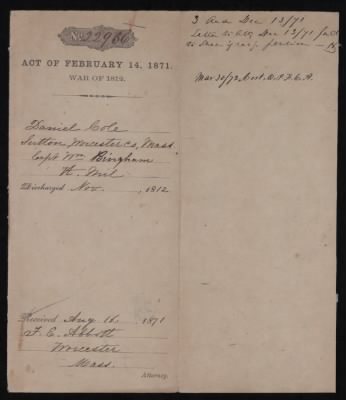 No. 22966
ACT OF FEBRUARY 14, 1871.
WAR OF 1812.
Daniel Cole
Sutton, Worcester Co, Mass
Capt Wm Bingham
Vt. Mil
Discharged Nov. , 1812
Received Aug 16 1871
F. E. Abbott
Worcester
Mass.
Attorney.
3 Dec 13/71
Letter to Atty Dec 13/71
to service pension
Mar 30/72